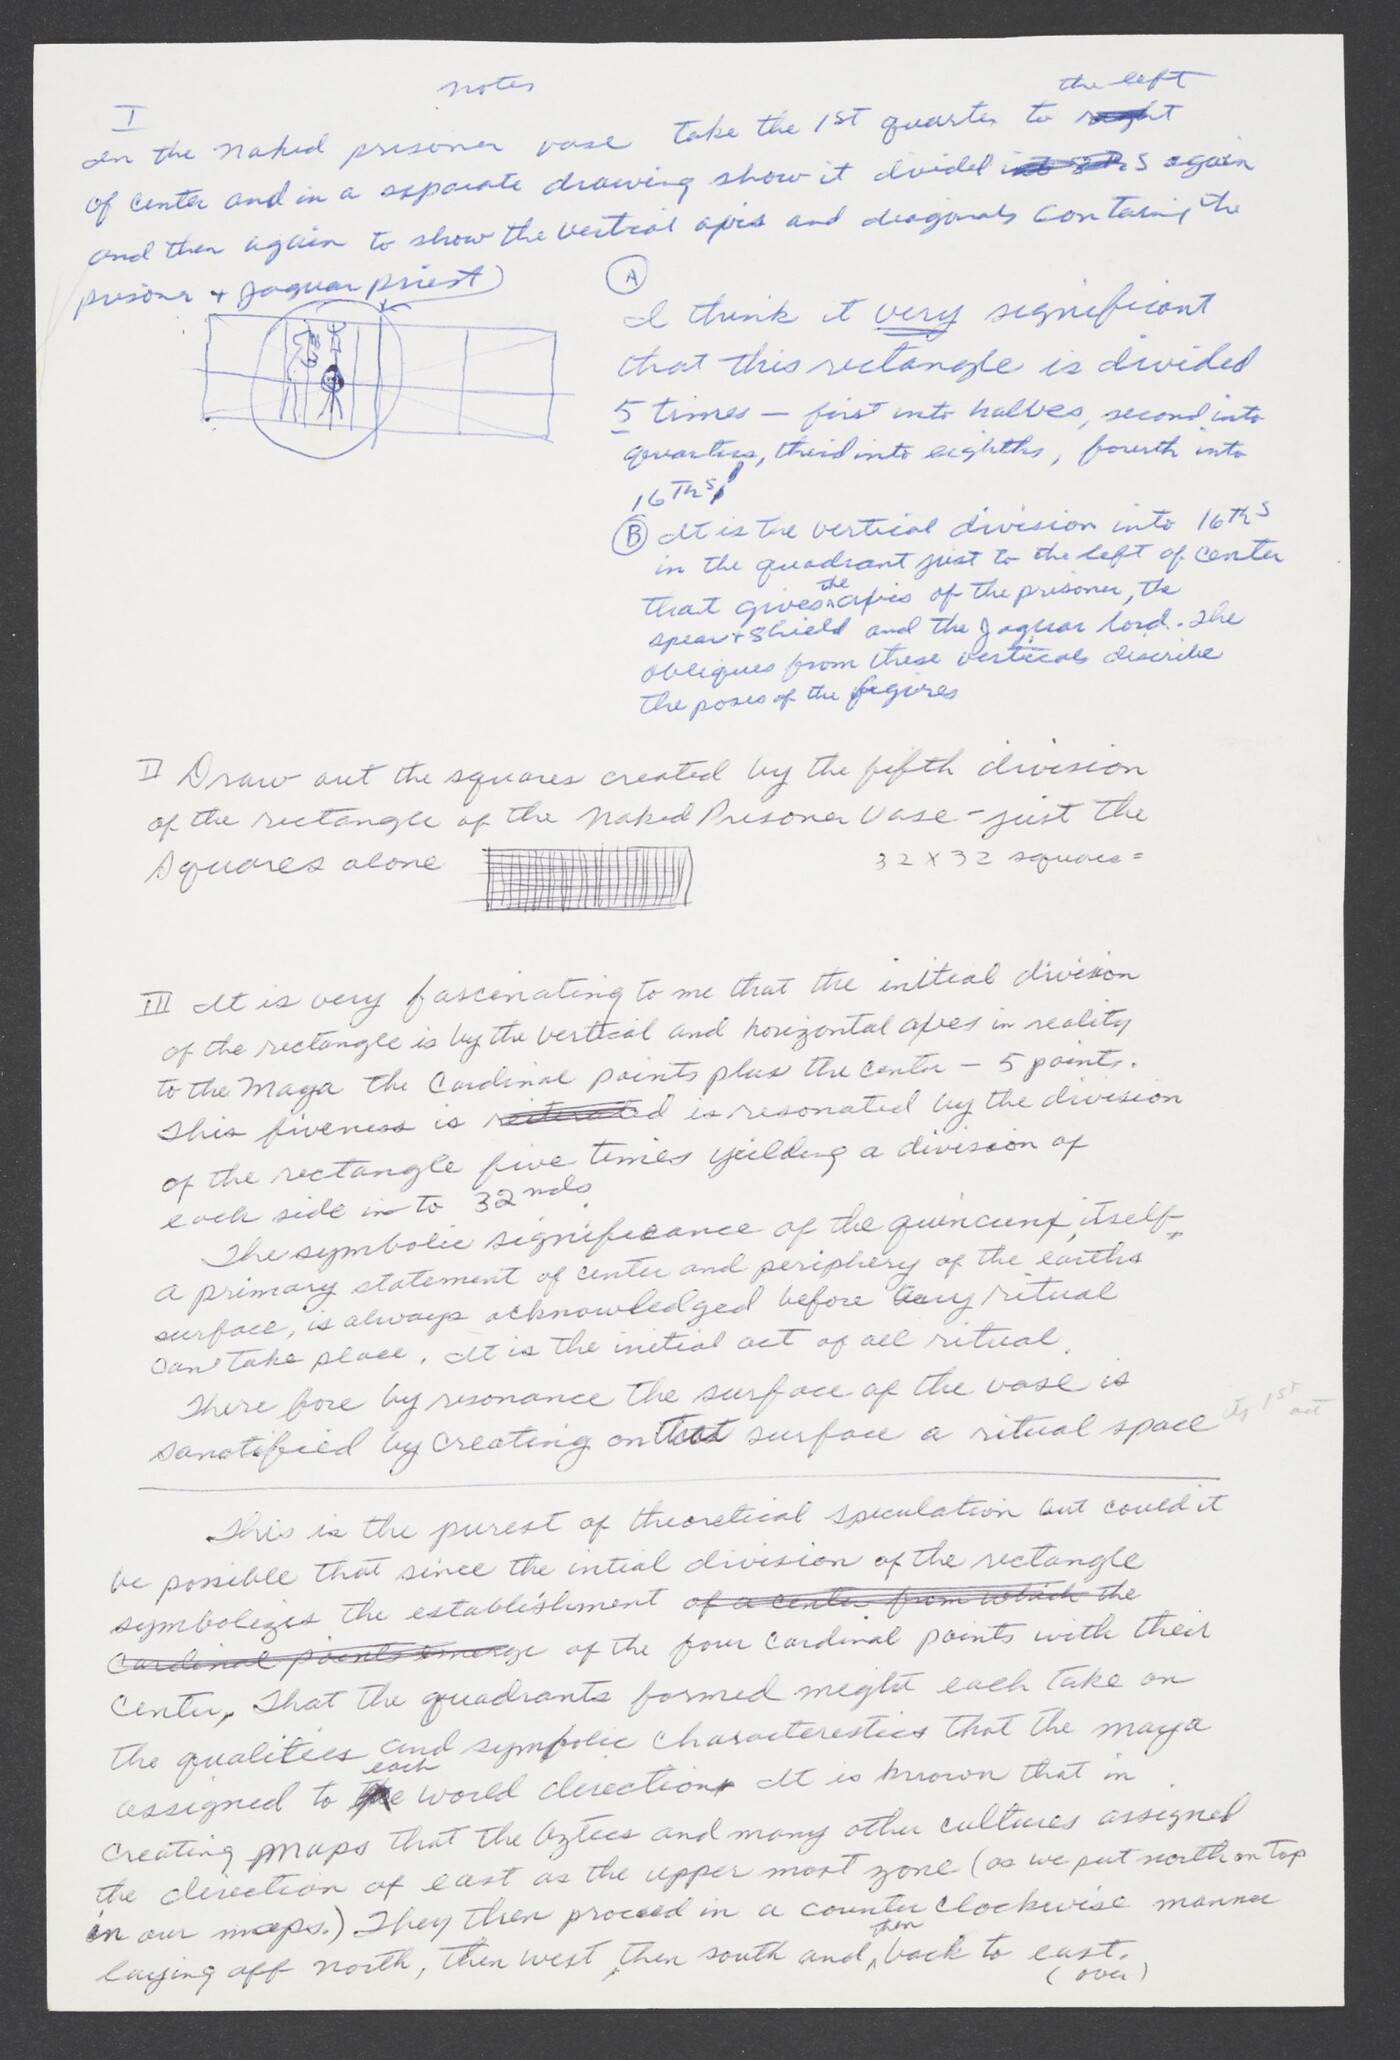 notes
I
the left
In the naked prisoner vase take the 1st quarter to right
of center and in a separate drawing show it divided into 8ths again
and then again to show the vertical axis and diagonals containing the
prisoner + Jaguar priest)
A
I think it very significant
that this rectangle is divided
5 times — first into halves, second into
quarters, third into eighths, fourth into
16ths!
B It is the vertical division into 16ths
in the quadrant just to the left of center
that gives the axis of the prisoner, the
spear + shield and the Jaguar lord. The
obliques from these verticals discribe
the poses of the figures
II Draw out the squares created by the fifth division
of the rectangle of the Naked Prisoner Vase – just the
squares alone
32 x 32 squares =
III It is very fascinating to me that the initial division
of the rectangle is by the vertical and horizontal axes in reality
to the Maya the Cardinal points plus the center – 5 points.
This fiveness is reiterated is resonated by the division
of the rectangle five times yeilding a division of
each side in to 32nds.
The symbolic significance of the quincunx, itself
a primary statement of center and periphery of the earths
surface, is always acknowledged before any ritual
can take place. It is the initial act of all ritual.
There fore by resonance the surface of the vase is
sanctified by creating on that surface a ritual space
its 1st act
This is the purest of theoretical speculation but could it
be possible that since the intial division of the rectangle
symbolizes the establishment of a center from which the
Cardinal points emerge of the four Cardinal points with their
Center, That the quadrants formed might each take on
the qualities and symbolic characterestics that the Maya
assigned to the each world direction, It is known that in
creating maps that the Aztecs and many other cultures assigned
the direction of east as the upper most zone (as we put north on top
in our maps.) They then proceed in a counter clockwise manner
laying off north, then west, then south and, then back to east.
(over)